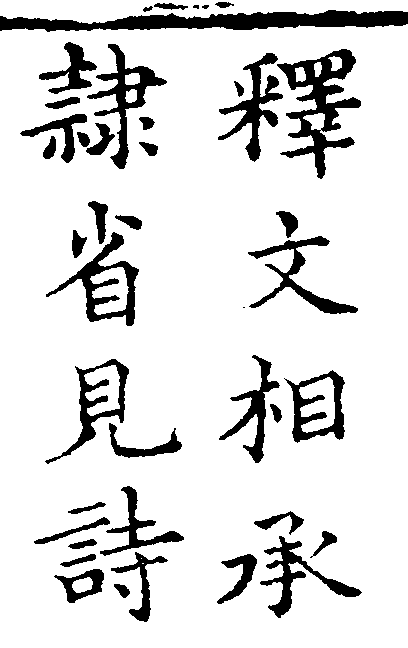 釋文相承
隷省見詩